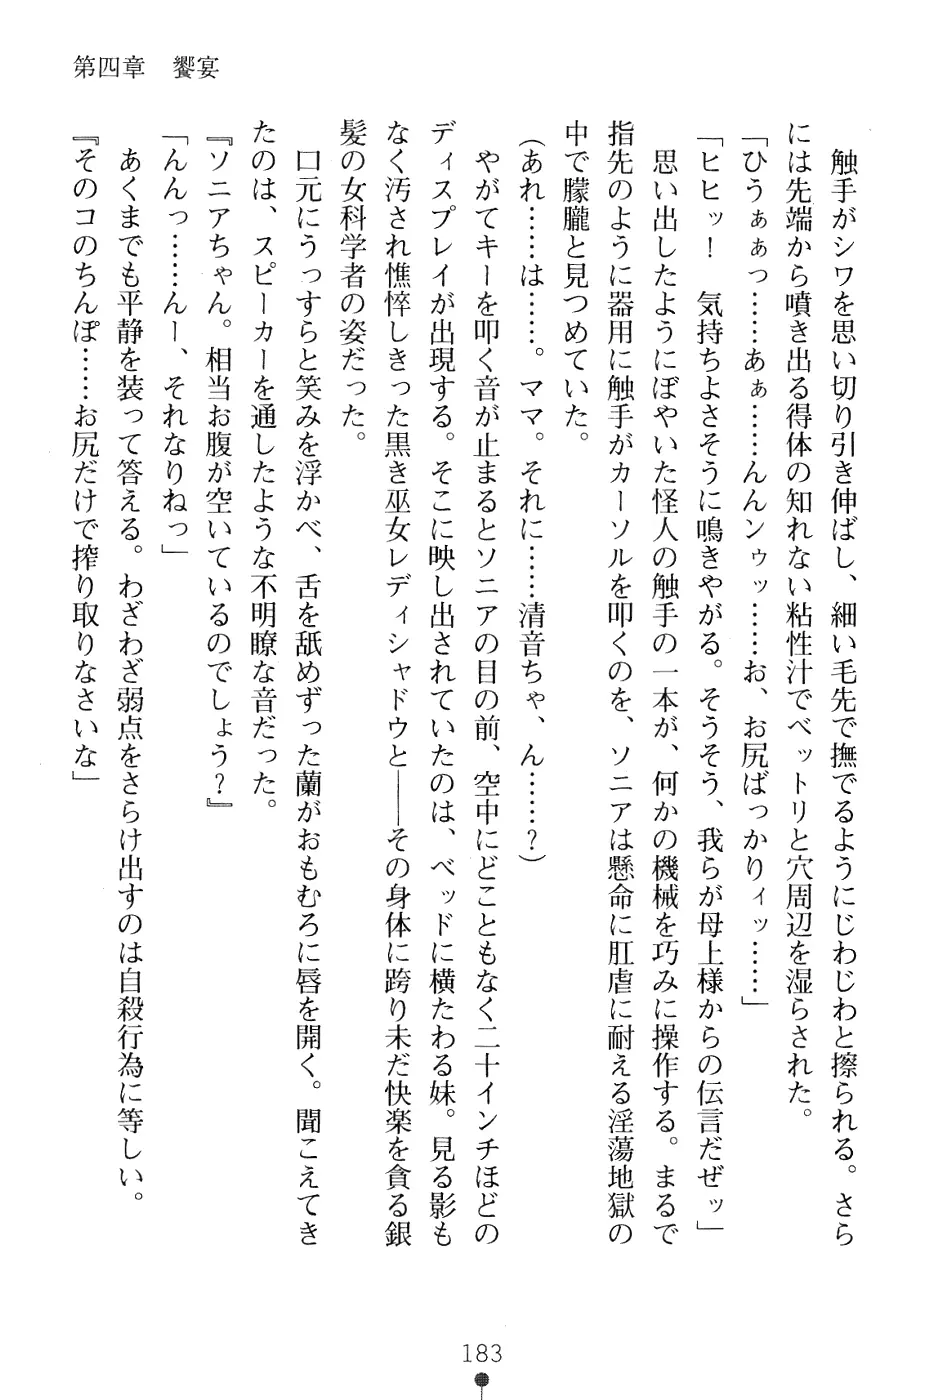 第四章　饗宴
触手がシワを思い切り引き伸ばし、細い毛先で撫でるようにじわじわと擦られる。さら
には先端から噴き出る得体の知れない粘性汁でベットリと穴周辺を湿らされた。
「ひうぁぁっ……あぁ……んんンゥッ……お、お尻ばっかりィッ……」
「ヒヒッ！　気持ちよさそうに鳴きやがる。そうそう、我らが母上様からの伝言だぜッ」
思い出したようにぼやいた怪人の触手の一本が、何かの機械を巧みに操作する。まるで
指先のように器用に触手がカーソルを叩くのを、ソニアは懸命に肛虐に耐える淫蕩地獄の
中で朦朧と見つめていた。
（あれ……は……。ママ。それに……清音ちゃ、ん……？）
やがてキーを叩く音が止まるとソニアの目の前、空中にどこともなく二十インチほどの
ディスプレイが出現する。そこに映し出されていたのは、ベッドに横たわる妹。見る影も
なく汚され憔悴しきった黒き巫女レディシャドウと――その身体に跨り未だ快楽を貪る銀
髪の女科学者の姿だった。
口元にうっすらと笑みを浮かべ、舌を舐めずった蘭がおもむろに唇を開く。聞こえてき
たのは、スピーカーを通したような不明瞭な音だった。
『ソニアちゃん。相当お腹が空いているのでしょう？』
「んんっ……んー、それなりねっ」
あくまでも平静を装って答える。わざわざ弱点をさらけ出すのは自殺行為に等しい。
『そのコのちんぽ……お尻だけで搾り取りなさいな」
183